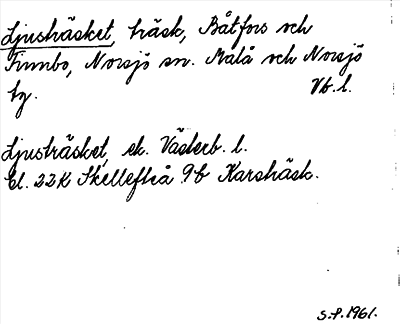 Ljusträsket, träsk, Båtfors och
Finnbo, Norsjö sn. Malå och Norsjö
tg. Vb. l.
Ljusträsket, ek. Västerb. l.
bl. 22K Skellefteå 9b Karsträsk.
S.P. 1961.